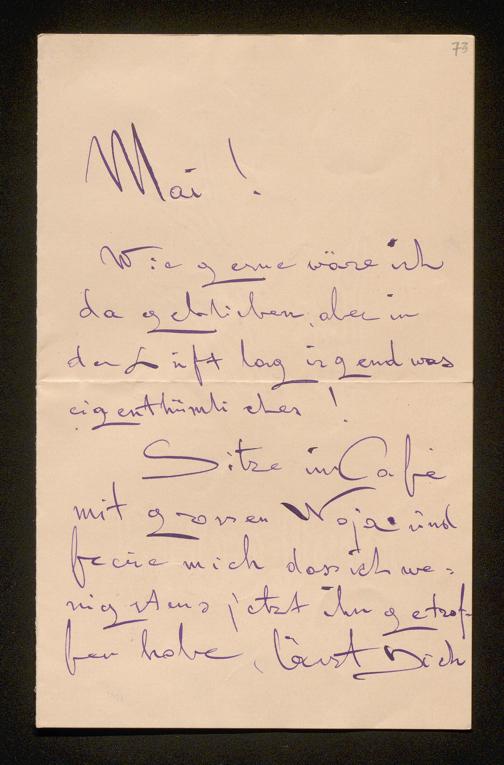 73
Mai !
Wie gerne wäre ich
da geblieben, aber in
der Luft lag irgend was
eigenthümliches !
Sitze im Café
mit grossen Woja und
freue mich dass ich we=
nigstens jetzt ihn getrof-
fen habe, lässt Dich